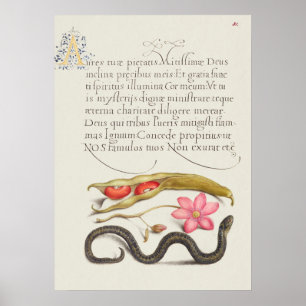 Aures tuæ pietatis Mitissime Deus
inclina precibus meis. Et gratia sanc
ti spiritus illumina Cor meum: Vt tu
is mysterijs digne ministrare teque
æterna charitate diligere merear.
Deus qui tribus Pueris mitigasti flam
mas Ignium Concede propinus ut
NOS famulos tuos Non exurat etc